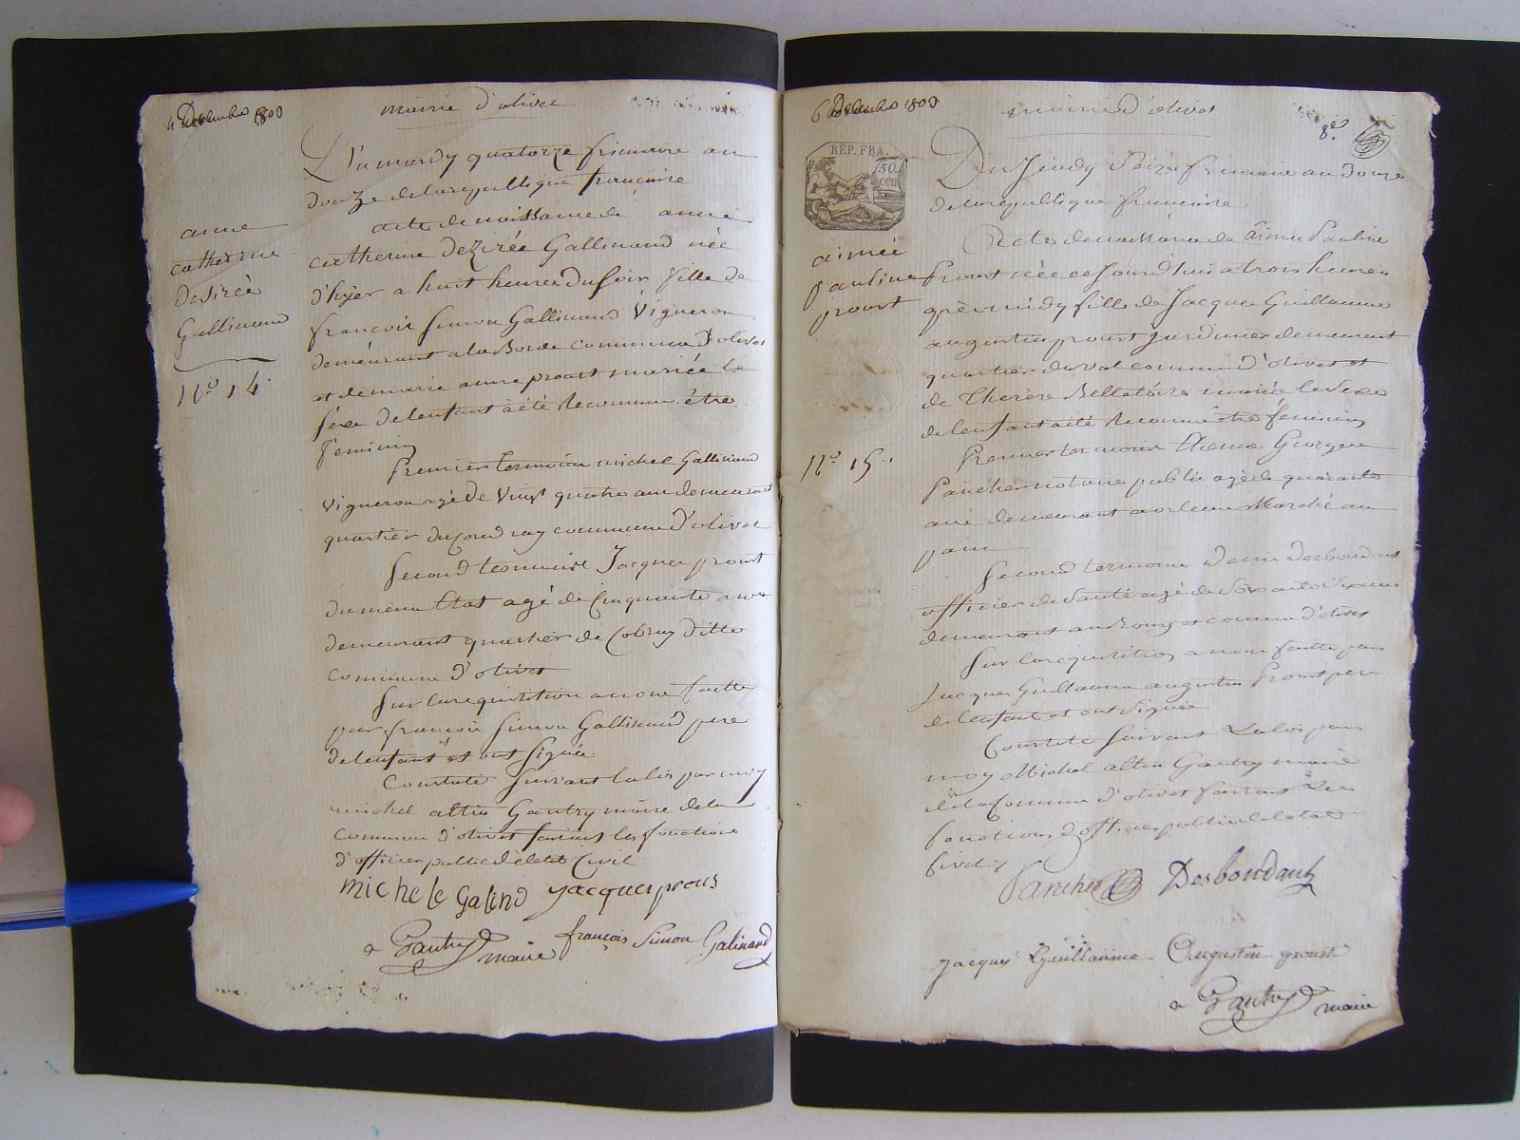 mairie d'olivet
Du mardy quatorze frimaire an
douze de la republique francaise
acte de naissance de anne
catherine dezirée Gallinand née
d'hyer a huit heures du soir fille de
françois simon Gallinand vigneron
demeurant a la Borde commune d'olivet
et de marie anne proust mariée le
sexe de lenfant a été Reconnu être
feminin
Premier temoin michel Gallinand
vigneron agé de vingt quatre ans demeurant
quartier du commune d'olivet
Second temoin Jacques proust
du meme Etat agé de Cinquante ans
demeurant quartier de Couasnon ditte
commune d'olivet
Sur la requisition a nous faitte
par françois simon Gallinand pere
de lenfant et ont signé
Constaté suivant la loi par moy
michel altin Gautry maire de la
commune d'olivet faisant les fonctions
d'officier public de letat Civil
michelle Galind jacques prous
Gautry maire françois simon Galinand
anne
catherine
desirée
Gallinand
No. 14.
mairie d'olivet
8e.
REP. FRA.
Du Jeudy Seize frimaire an Douze
de la republique francaise
Acte de naissance de aimée Pauline
Proust née ce jourd'hui a trois heures
après midy fille de Jacques Guillaume
augustin proust jardinier demeurant
quartier du val commune d'olivet et
de Therèse mariée le Sexe
de lenfant a été Reconnu être feminin
Premier temoin Etienne George
notaire public agé de quarante
ans demeurant a orleans Marché au
pain
Second temoin Denis Desbordaut
officier de Santé agé de
demeurant au Bourg et commune d'olivet
Sur la requisition a nous faitte par
Jacques Guillaume augustin Proust pere
de lenfant et ont signé
Constaté suivant La loi par
moy Michel altin Gautry maire
de la Commune d'olivet faisant Les
fonctions d'officier public de letat
Civil
Desbordaut
Jacques Guillaume Augustin proust
Gautry maire
aimée
pauline
proust
No. 15.